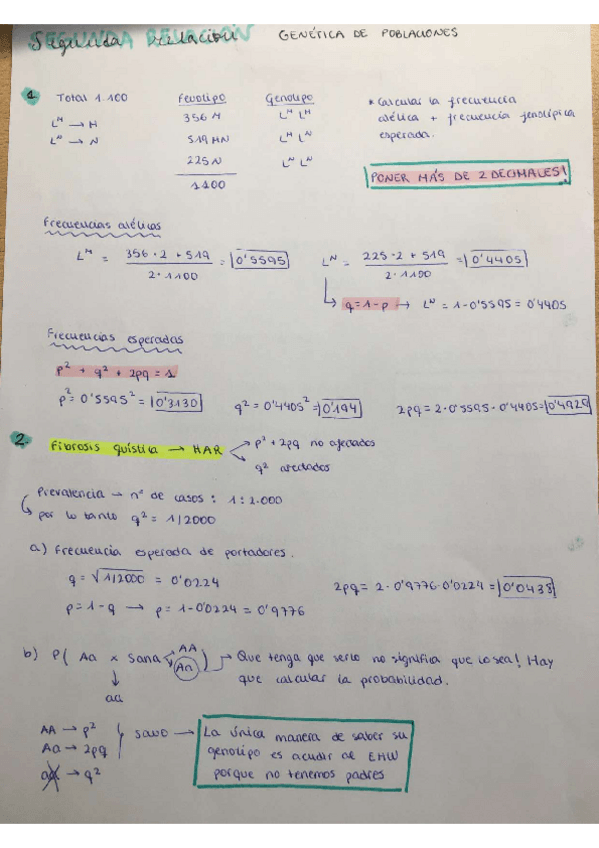 Segunda relación GENÉTICA DE POBLACIONES
1. Total 1.100 Fenotipo Genotipo * Calcular la frecuencia
L^M → M 356 M L^M L^M alélica + frecuencia fenotípica
L^N → N 519 MN L^M L^N esperada.
225 N L^N L^N
1100 PONER MÁS DE 2 DECIMALES!
Frecuencias alélicas
L^M = 356·2 + 519 / 2·1100 = 0'5595 L^N = 225·2 + 519 / 2·1100 = 0'4405
q = 1-p → L^N = 1-0'5595 = 0'4405
Frecuencias esperadas
p² + q² + 2pq = 1
p² = 0'5595² = 0'3130 q² = 0'4405² = 0'194 2pq = 2·0'5595·0'4405 = 0'4929
2. Fibrosis quística → HAR p² + 2pq no afectados
q² afectados
Prevalencia → nº de casos : 1:2.000
por lo tanto q² = 1/2000
a) Frecuencia esperada de portadores.
q = √1/2000 = 0'0224 2pq = 2·0'9776·0'0224 = 0'0438
p = 1-q → p = 1-0'0224 = 0'9776
b) P( Aa x Sana AA Aa ) → Que tenga que serlo no significa que lo sea! Hay
que calcular la probabilidad.
aa
AA → p²
Aa → 2pq sano → La única manera de saber su
aa → q² genotipo es acudir al EHW
porque no tenemos padres